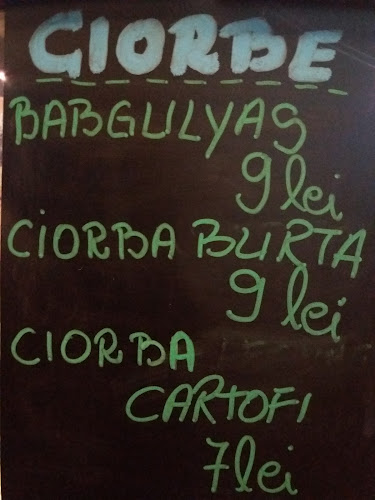 CIORBE
BABGULYAS
9 lei
CIORBA BURTA
9 lei
CIORBA
CARTOFI
7 lei